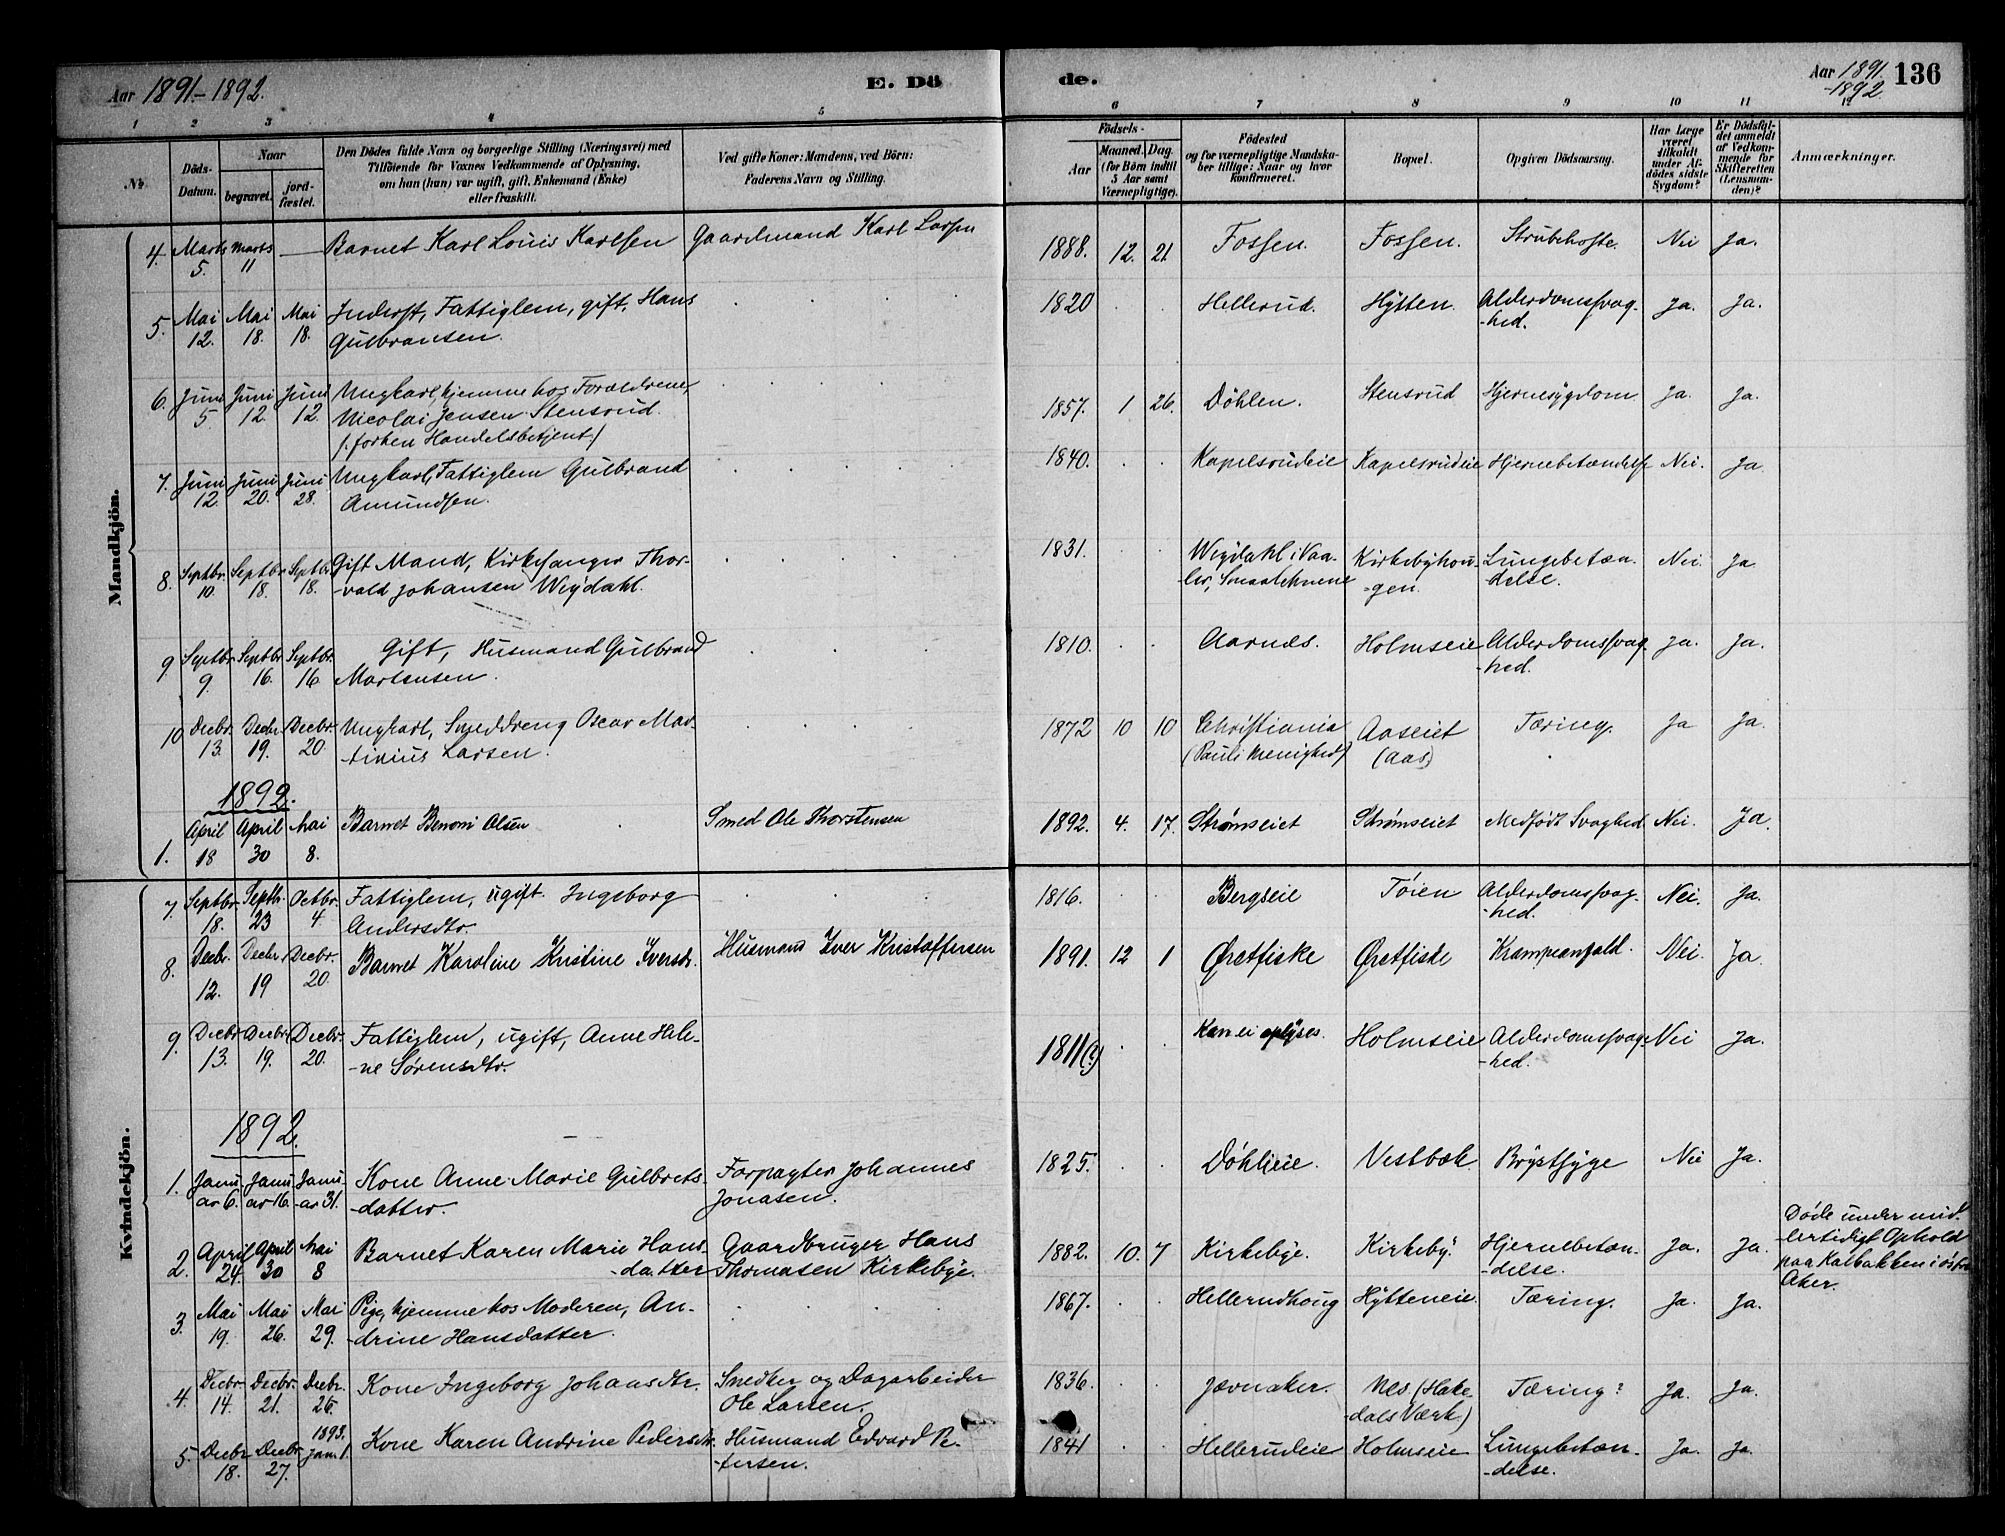 Aar 1891-1892. E. Dö de. Aar 1891. -1892 136
1 2 3 4 5 6 7 8 9 10 11 12
No. Döds-Datum. Naar begravet. jord-fæstet. Den Dödes fulde Navn og borgerlige Stilling (Næringsvei) med Tilföiende for Voxnes Vedkommende af Oplysning, om hun (han) var ugift, gift, Enkemand (Enke) eller fraskilt. Ved gifte Koner: Mandens, ved Börn: Faderens Navn og Stilling. Födsels- Aar Maaned. Dag. (for Börn indtil 5 Aar samt Værnepligtige). Födested og for værnepligtige Mandska-ber tillige: Naar og hvor konfirmeret. Bopæl. Opgiven Dödsaarsag. Har Læge været tilkaldt under Af-dödes sidste Sygdom? Er Dödsfal-det anmeldt af Vedkom-mende for Skifteretten (Lensman-den)? Anmærkninger.
Mandkjön.
4. Marts 5. Marts 11 — Barnet Karl Louis Karlsen Gaardmand Karl Larsen 1888. 12. 21. Fossen. Fossen. Strubehoste. Nei Ja.
5. Mai 12. Mai 18. Mai 18. Inderst, Fattiglem, gift, Hans Gulbransen. 1820 Hellerud. Hytten. Alderdomssvag-hed. Ja. Ja.
6. Juni 5. Juni 12. Juni 12. Ungkarl, hjemme hos Forældrene, Nicolai Jensen Stensrud. (forhen Handelsbetjent) 1857. 1 26. Döhlen. Stensrud Hjernesygdom Ja. Ja.
7. Juni 12. Juni 20. Juni 28. Ungkarl, Fattiglem Gulbrand Amundsen. 1840. Kapelsrudeie Kapelsrudeie Hjernebetændelse Nei. Ja
8. Septbr. 10. Septbr. 18. Septbr. 18. Gift Mand, Kirkesanger Thor-vald Johansen Weydahl. 1831. Weydahl i Vaa-ler, Smaalenene Kirkebyhou-gen. Lungebetæn-delse. Nei. Ja
9 Septbr. 9. Septbr. 16. Septbr. 16 Gift, Husmand Gulbrand Martensen. 1810. Aarnes. Holmseie Alderdomssvag-hed. Ja. Ja.
10 Decbr. 13. Decbr. 19. Decbr. 20 Ungkarl, Smeddreng Oscar Mar-tinius Larsen. 1872 10 10 Christiania (Pauls Menighed) Aaseiet (Aas) Tæring. Ja Ja.
1892.
1. April 18 April 30 Mai 8. Barnet Benoni Olsen Smed Ole Thorstensen 1892. 4. 17. Strømseiet Strømseiet Medfødt Svaghed Nei. Ja.
Kvindekjön.
7. Septbr. 18. Septb. 23 Octbr. 4 Fattiglem, ugift. Ingeborg Andersdtr. 1816. Bergseie Töien Alderdomssvag-hed. Nei. Ja.
8. Decbr. 12. Decbr. 19 Decbr. 20. Barnet Karoline Kristine Iversdr. Husmand Iver Kristoffersen 1891. 12 1 Øretfiske Øretfiske Krampeanfald. Nei. Ja.
9. Decbr. 13. Decbr. 19. Decbr. 20. Fattiglem, ugift, Anne Hele-ne Sørensdtr. 1811(?) Kan ei oplyses. Holmseie Alderdomssvag-hed. Nei Ja.
1892.
1. Janu-ar 6. Janu-ar 16. Janu-ar 31. Kone Anne Marie Gulbrets-datter. Forpagter Johannes Jonasen. 1825. Döhleie. Vestbæk Brystsyge Nei Ja.
2. April 24. April 30 Mai 8 Barnet Karen Marie Hans-datter Gaardbruger Hans Thomasen Kirkebye. 1882. 10. 7 Kirkebye. Kirkeby. Hjernebetæn-delse. Ja. Ja. Döde under mid-lertidigt Ophold paa Kalbakken i östre Aker.
3. Mai 19. Mai 26. Mai 29. Pige, hjemme hos Moderen, An-drine Hansdatter. 1867. Hellerudhoug Hytteneie. Tæring. Ja. Ja.
4. Decbr. 14. Decbr. 21. Decbr. 26. Kone Ingeborg Johansdtr. Snedker og Dagarbeider Ole Larsen. 1836. Jævnaker. Nes. (Hake-dals Værk) Tæring? Ja. Ja.
5. Decbr 18. Decbr. 27. 1893. Jan. 1. Kone Karen Andrine Pedersdtr. Husmand Edvard Pe-tersen. 1841 Hellerudeie Holmseie Lungebetæn-delse. Ja. Ja.